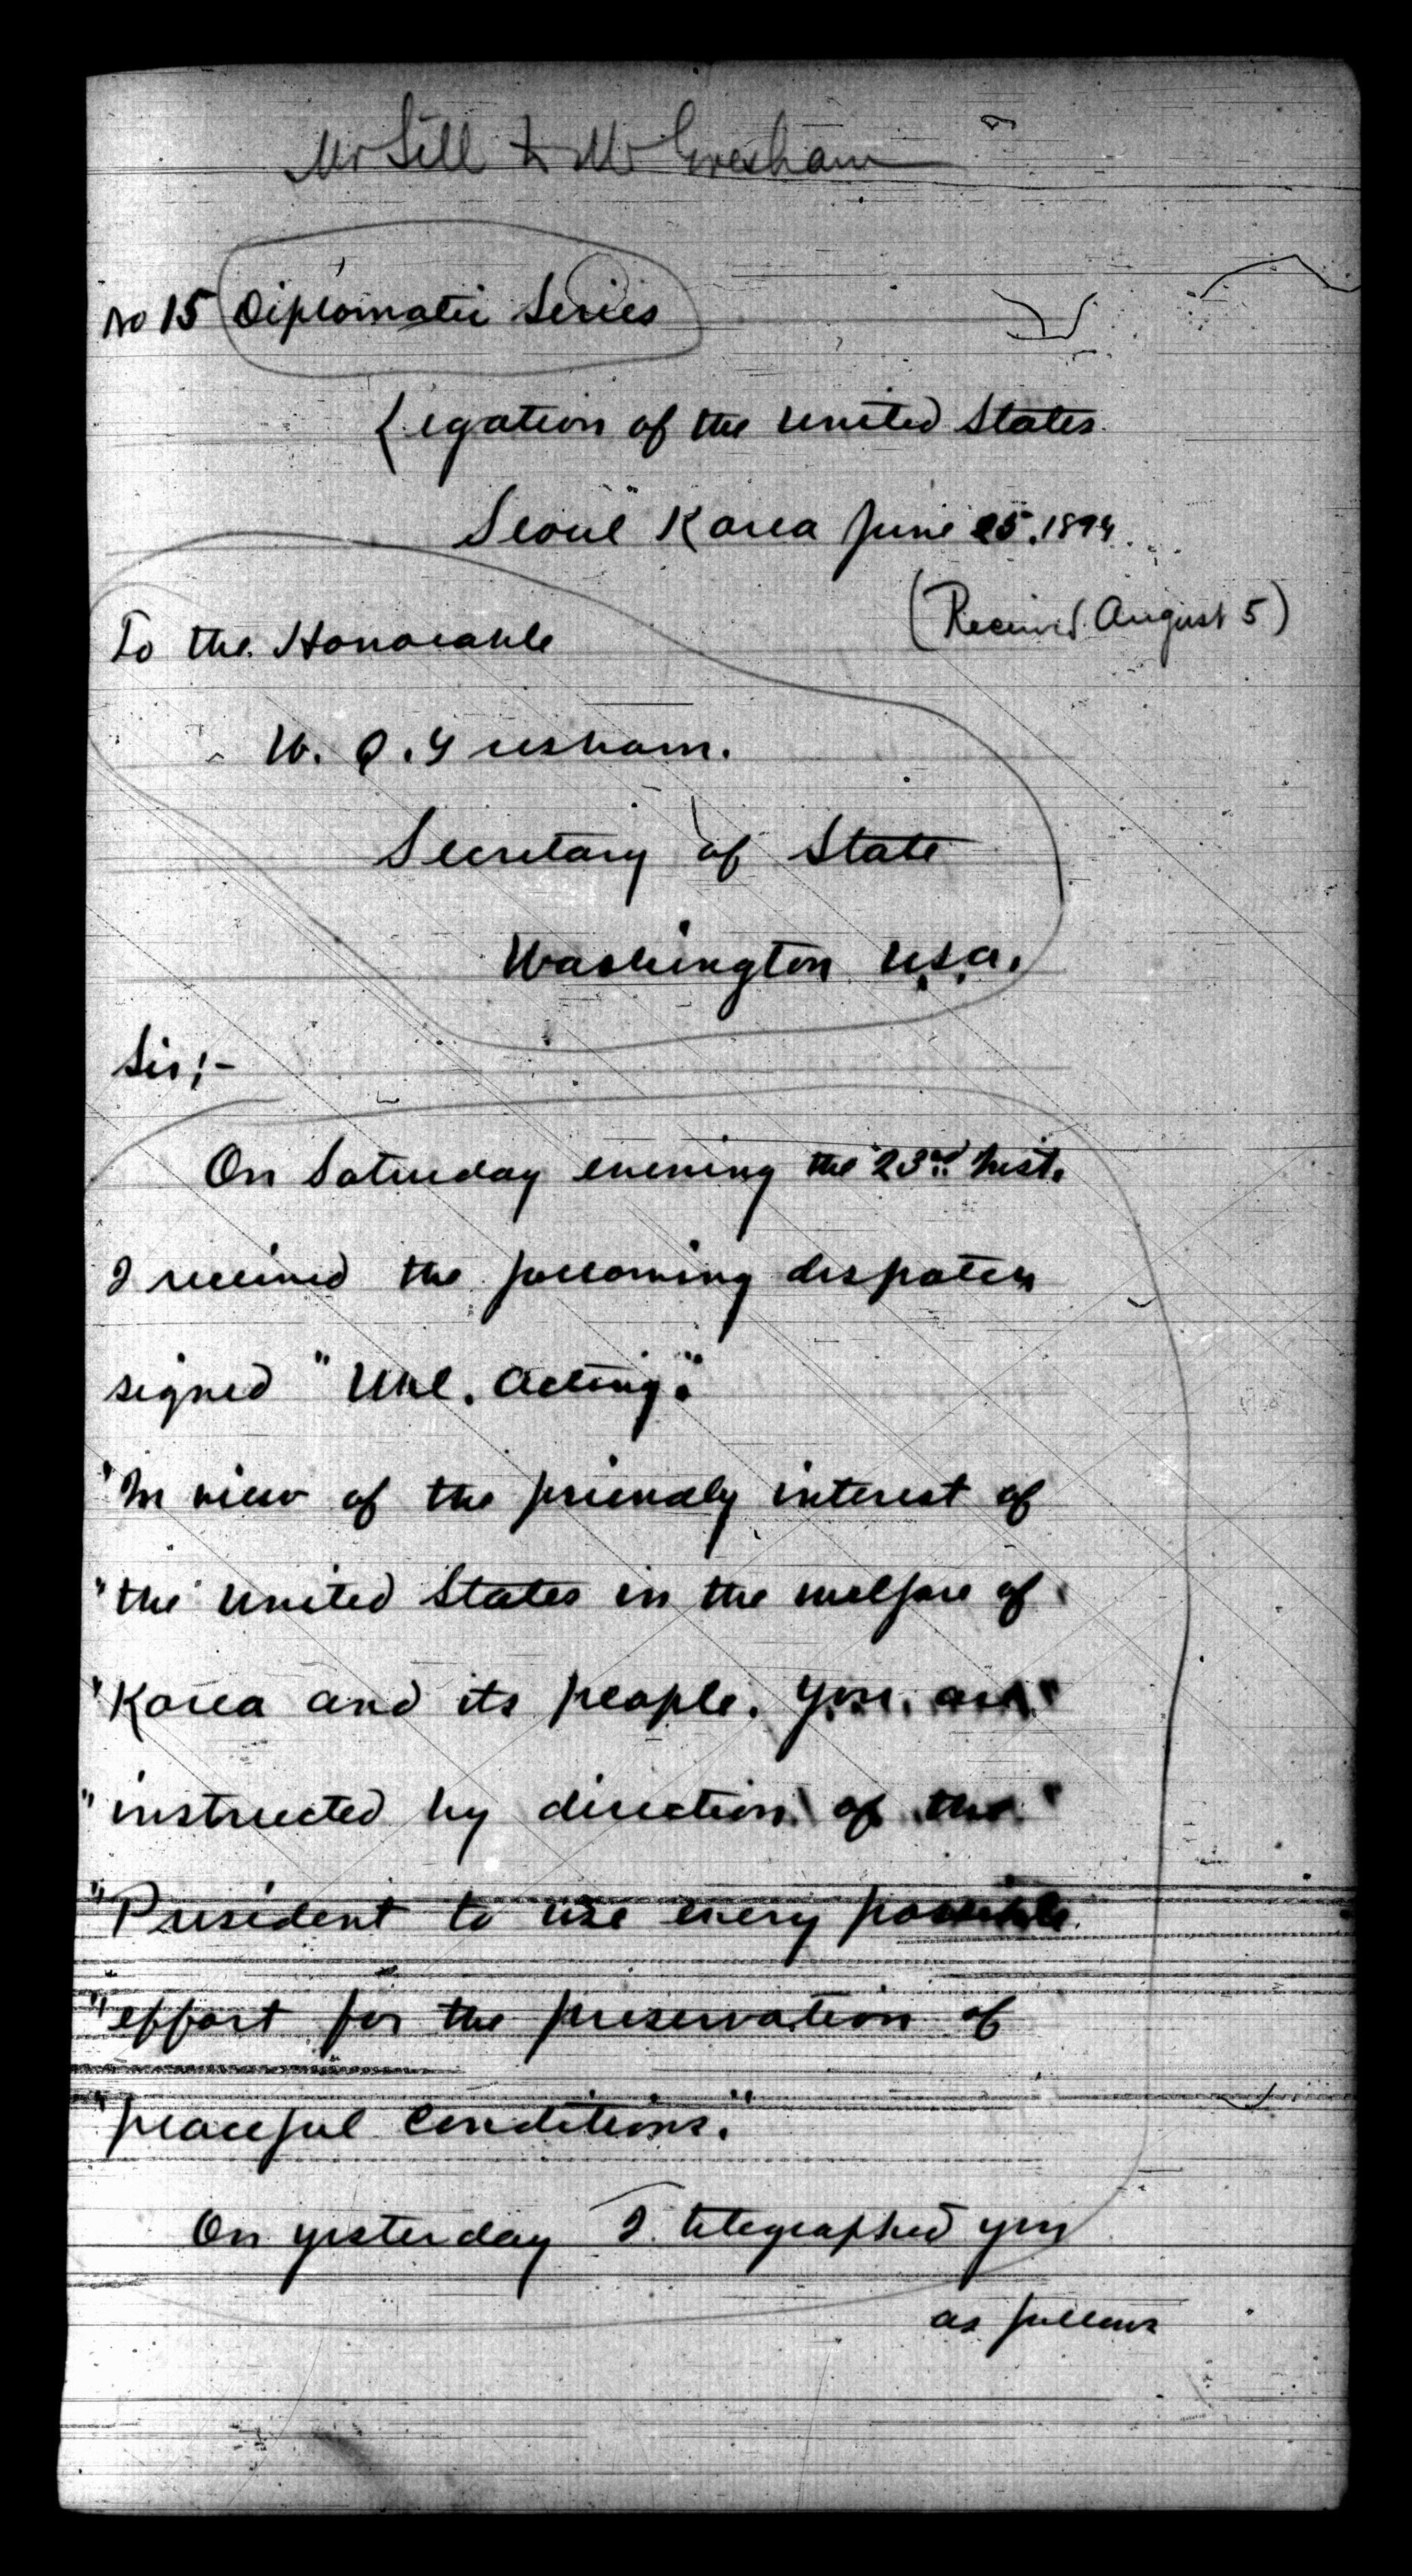 Mr Sill to Mr Gresham
No 15 Diplomatic Series
Legation of the United States
Seoul Korea June 25, 1894
(Received August 5)
To the Honorable
W. Q. Gresham.
Secretary of State
Washington U.S.A.
Sir:-
On Saturday evening the 23rd Inst.
I received the following dispatch
signed "Uhl. Acting."
"In view of the friendly interest of
"the United States in the welfare of "
"Korea and its people. You are "
"instructed by direction of the "
"President to use every possible
"effort for the preservation of
"peaceful conditions."
On yesterday I telegraphed you
as follows